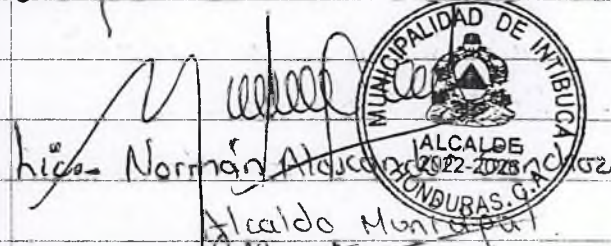 MUNICIPALIDAD DE INTIBUCA
ALCALDE
2022-2026
HONDURAS. C.A.
Lic. Norman Alexander Sanchez
Alcalde Municipal